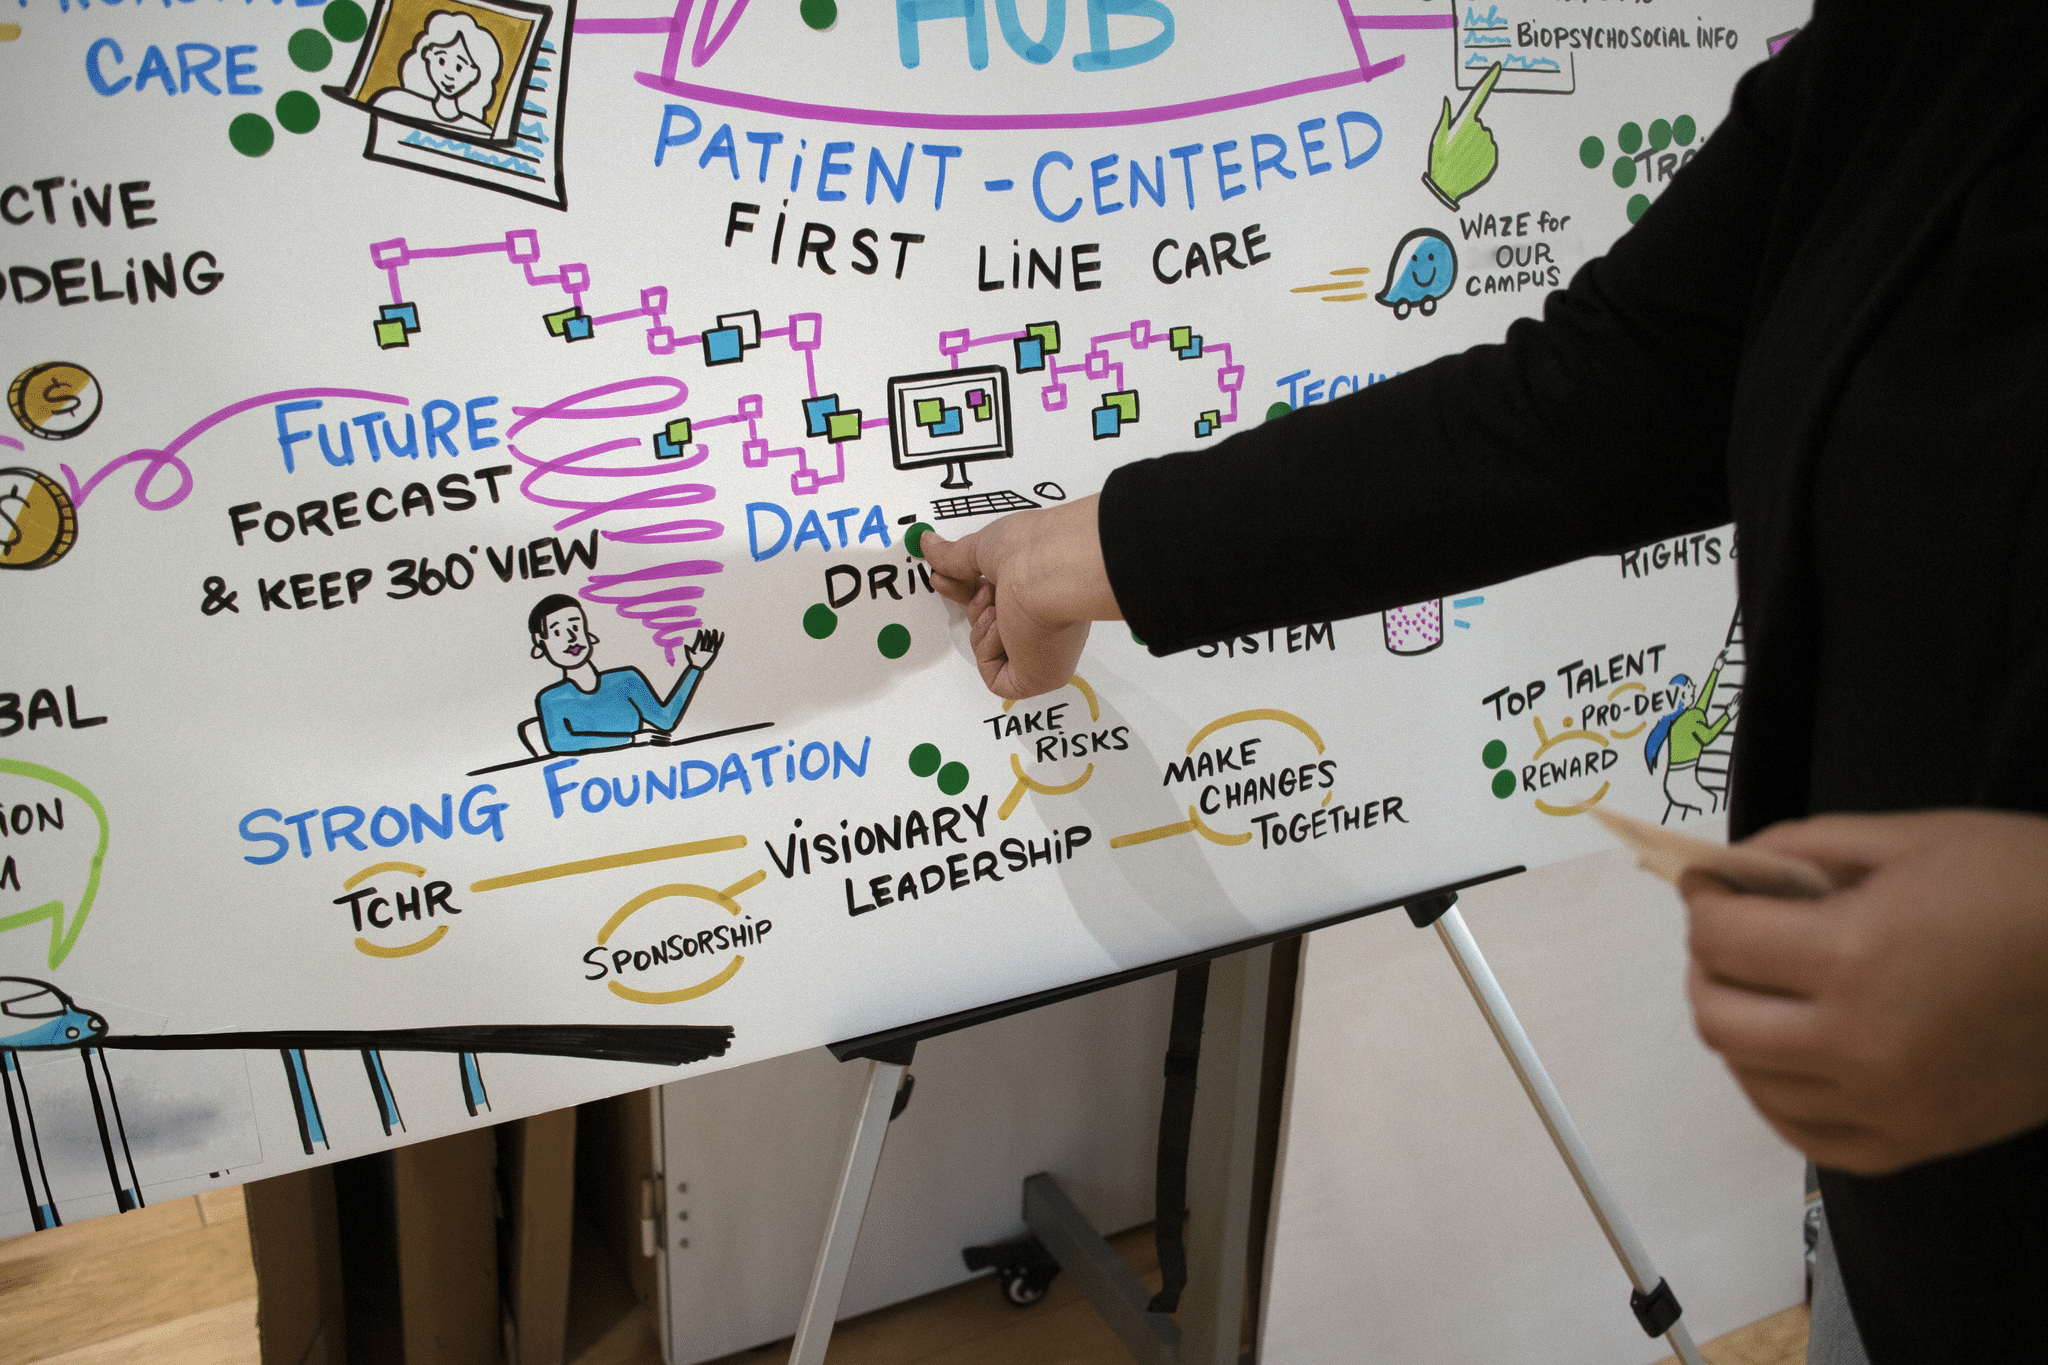 CARE
HUB
PATIENT-CENTERED
FIRST LINE CARE
BIOPSYCHOSOCIAL INFO
WAZE for
OUR
CAMPUS
DELING
FUTURE
FORECAST
& KEEP 360° VIEW
DATA-
DRIV
RIGHTS &
SYSTEM
TOP TALENT
PRO-DEV
REWARD
STRONG FOUNDATION
TAKE
RISKS
MAKE
CHANGES
TOGETHER
VISIONARY
LEADERSHIP
TCHR
SPONSORSHIP